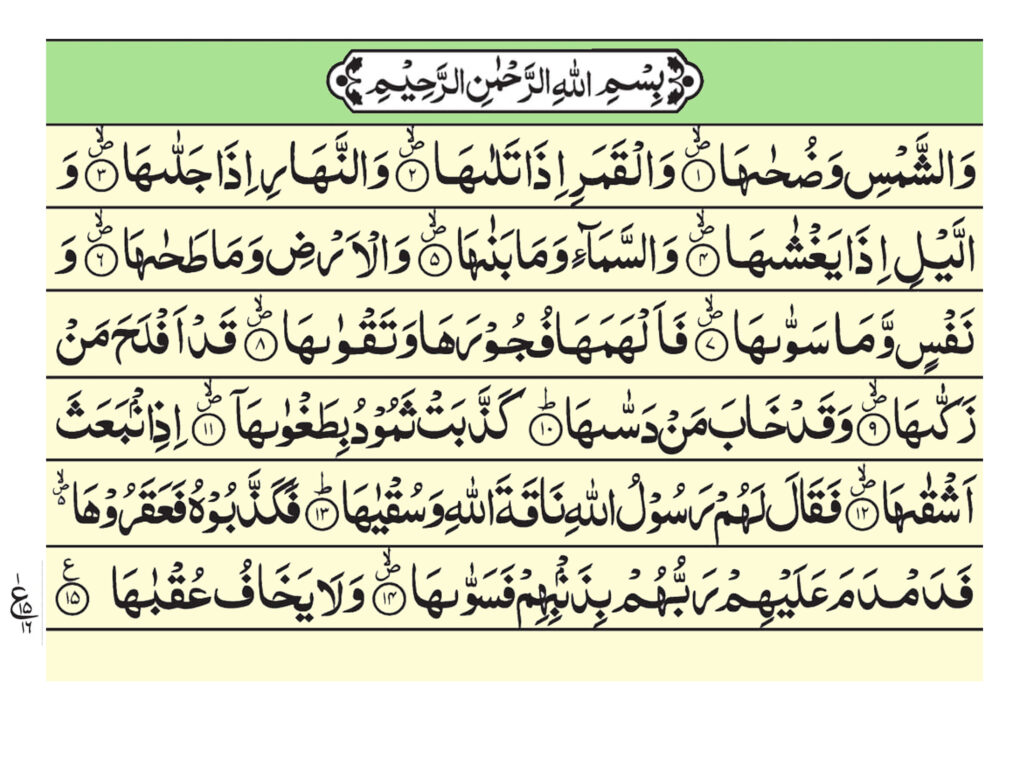 بِسْمِ اللهِ الرَّحْمٰنِ الرَّحِيْمِ
وَالشَّمْسِ وَضُحٰىهَا ۙ﴿۱﴾ وَالْقَمَرِ اِذَا تَلٰىهَا ۙ﴿۲﴾ وَالنَّهَارِ اِذَا جَلّٰىهَا ۙ﴿۳﴾ وَ
الَّيْلِ اِذَا يَغْشٰىهَا ۙ﴿۴﴾ وَالسَّمَآءِ وَمَا بَنٰىهَا ۙ﴿۵﴾ وَالْاَرْضِ وَمَا طَحٰىهَا ۙ﴿۶﴾ وَ
نَفْسٍ وَّمَا سَوّٰىهَا ۙ﴿۷﴾ فَاَلْهَمَهَا فُجُوْرَهَا وَتَقْوٰىهَا ۙ﴿۸﴾ قَدْ اَفْلَحَ مَنْ
زَكّٰىهَا ۙ﴿۹﴾ وَقَدْ خَابَ مَنْ دَسّٰىهَا ؕ﴿۱۰﴾ كَذَّبَتْ ثَمُوْدُ بِطَغْوٰىهَاۤ ۙ﴿۱۱﴾ اِذِ انْۢبَعَثَ
اَشْقٰىهَا ۙ﴿۱۲﴾ فَقَالَ لَهُمْ رَسُوْلُ اللهِ نَاقَةَ اللهِ وَسُقْيٰهَا ؕ﴿۱۳﴾ فَكَذَّبُوْهُ فَعَقَرُوْهَا ۙ۵
فَدَمْدَمَ عَلَيْهِمْ رَبُّهُمْ بِذَنْۢبِهِمْ فَسَوّٰىهَا ۙ﴿۱۴﴾ وَلَا يَخَافُ عُقْبٰهَا ﴿۱۵﴾ ع
ع ۱ ۱۵ ۱۶